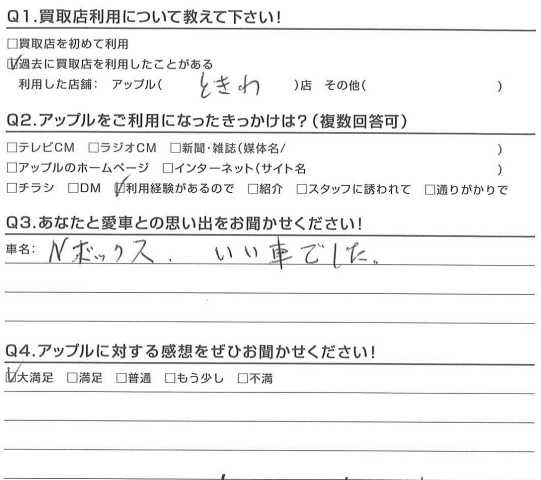 Q1.買取店利用について教えて下さい!
□買取店を初めて利用
☑過去に買取店を利用したことがある
利用した店舗: アップル( ときわ )店 その他( )
Q2.アップルをご利用になったきっかけは?(複数回答可)
□テレビCM □ラジオCM □新聞・雑誌(媒体名/ )
□アップルのホームページ □インターネット(サイト名 )
□チラシ □DM ☑利用経験があるので □紹介 □スタッフに誘われて □通りがかりで
Q3.あなたと愛車との思い出をお聞かせください!
車名: Nボックス. いい車でした。
Q4.アップルに対する感想をぜひお聞かせください!
☑大満足 □満足 □普通 □もう少し □不満